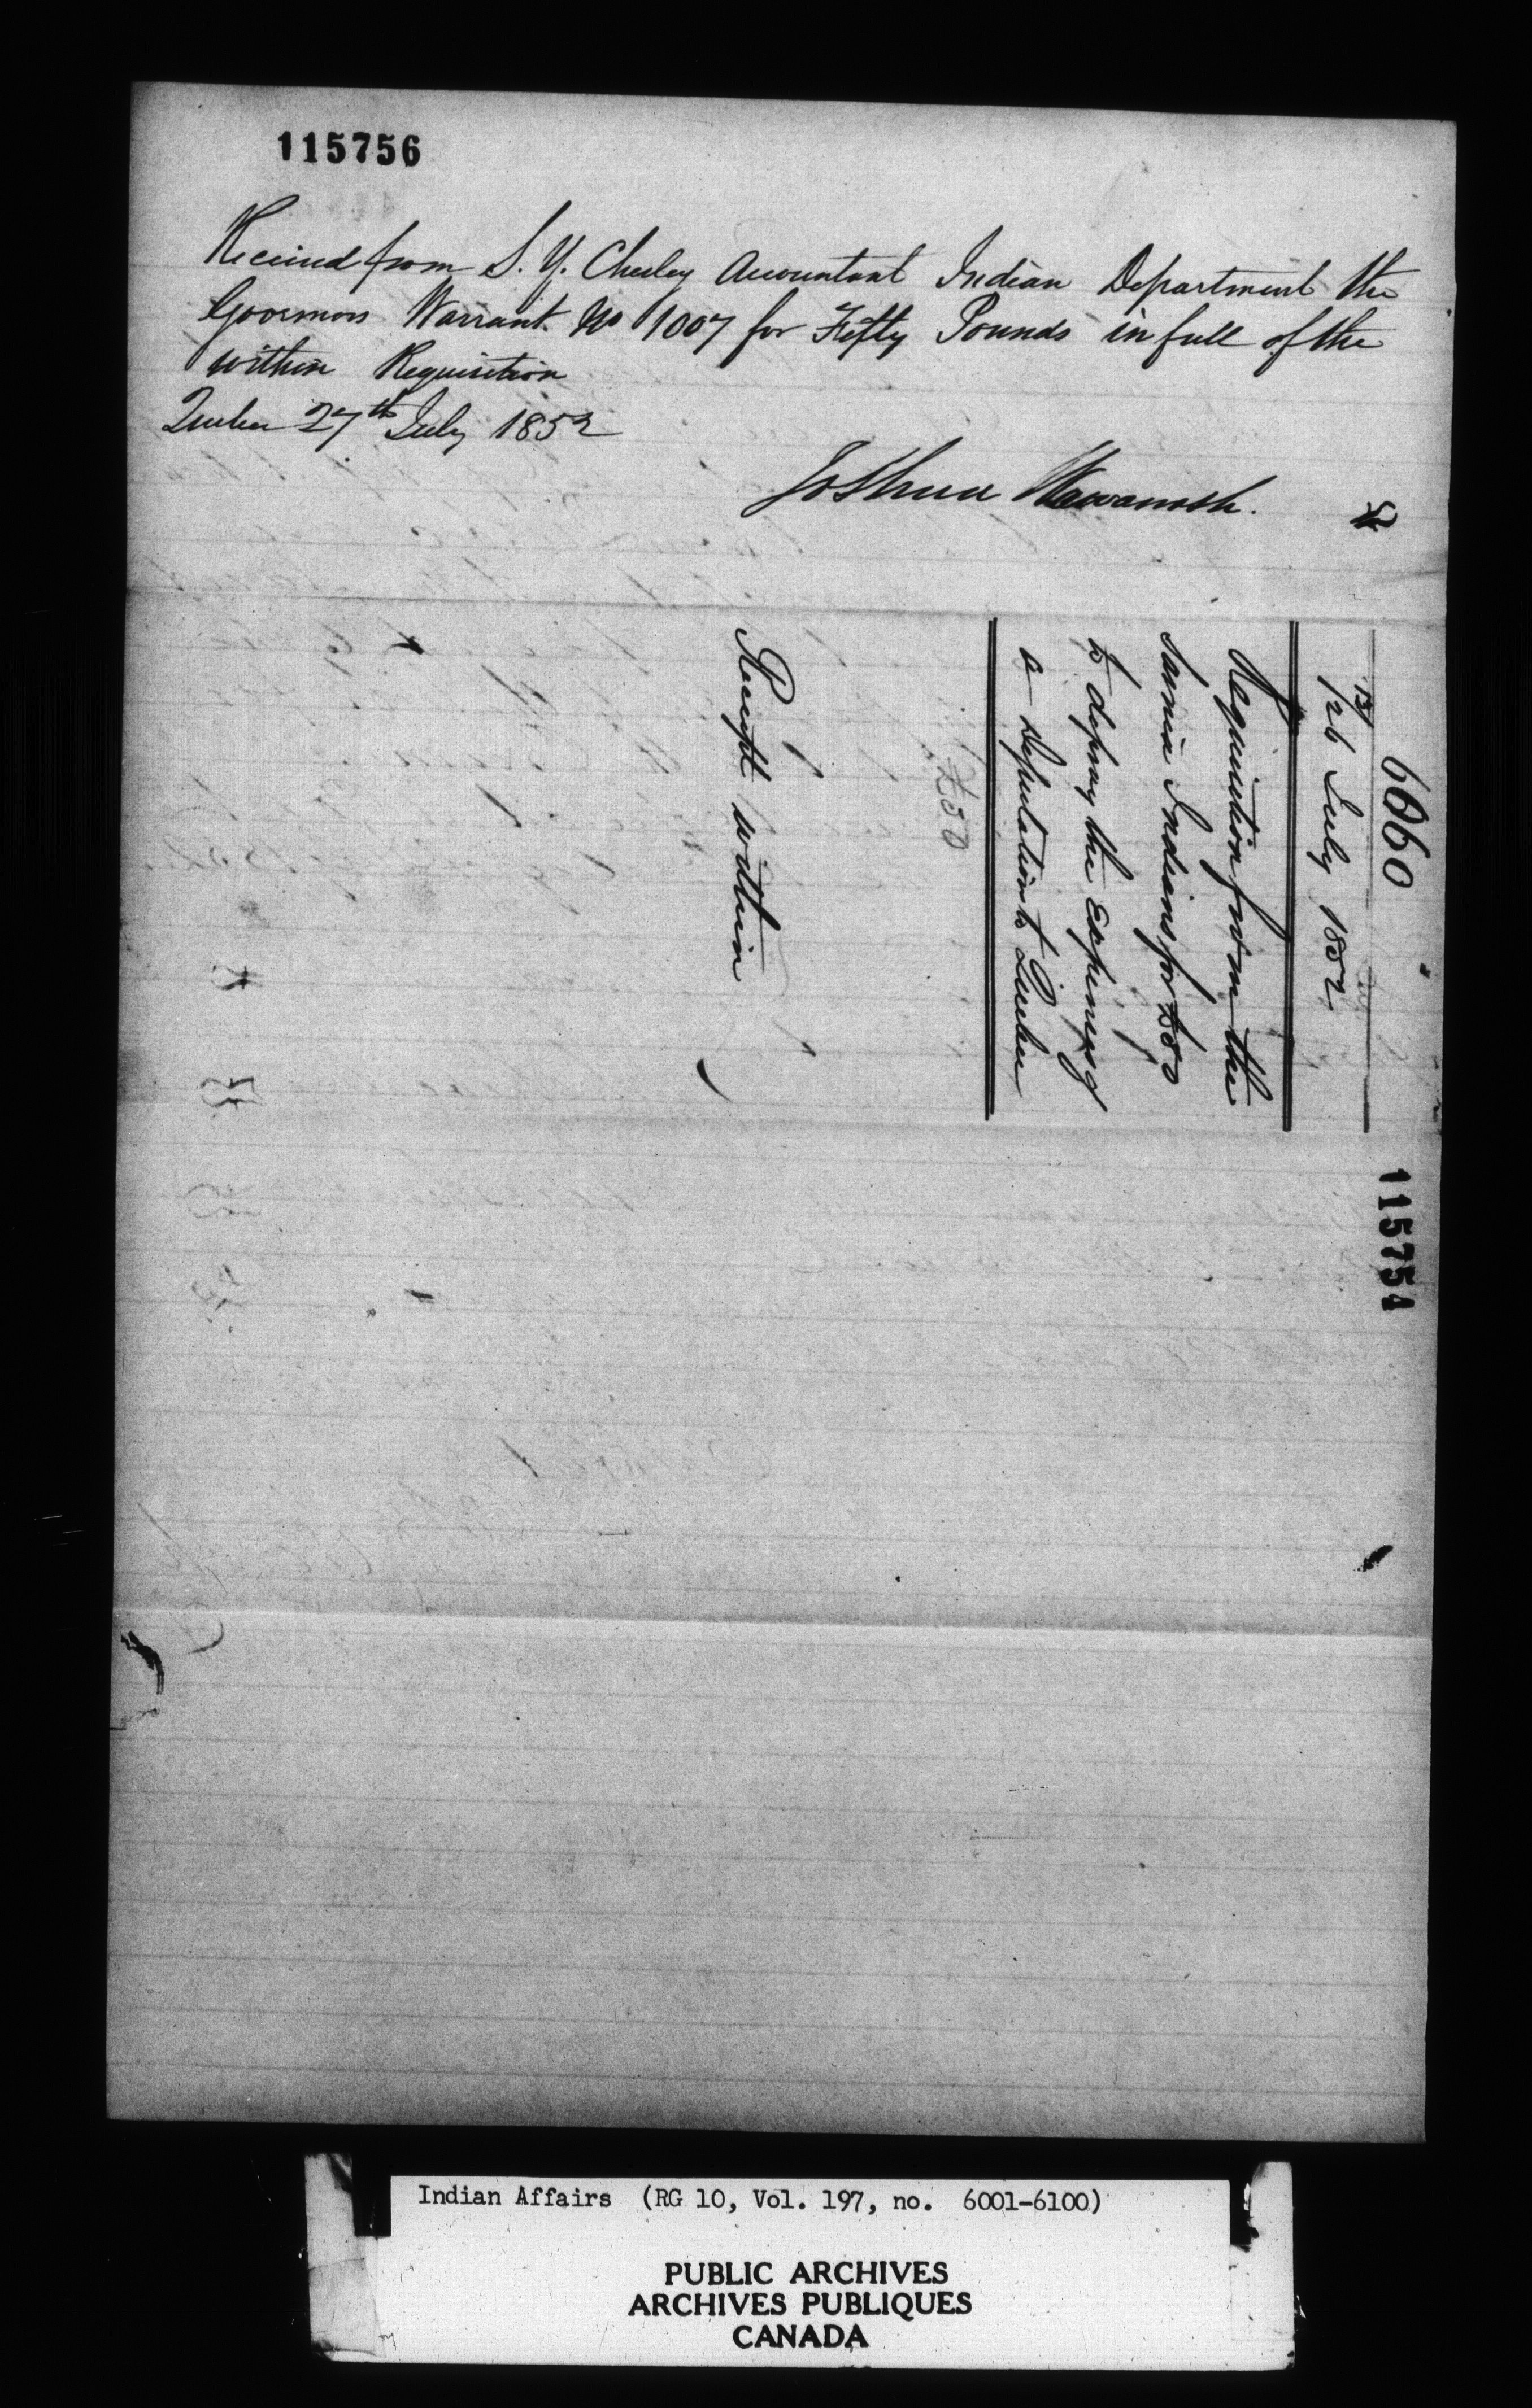 115756
Received from S. Y. Chesley Accountant Indian Department the
Governors Warrant No 1007 for Fifty Pounds in full of the
within Requisition
Quebec 27th July 1852
Joshua Wawanosh.
6060
26 July 1852
Requisition from the
Sarnia Indians for £50
to defray the Expenses of
a Deputation to Quebec
£50
Receipt within
115754
Indian Affairs (RG 10, Vol. 197, no. 6001-6100)
PUBLIC ARCHIVES
ARCHIVES PUBLIQUES
CANADA